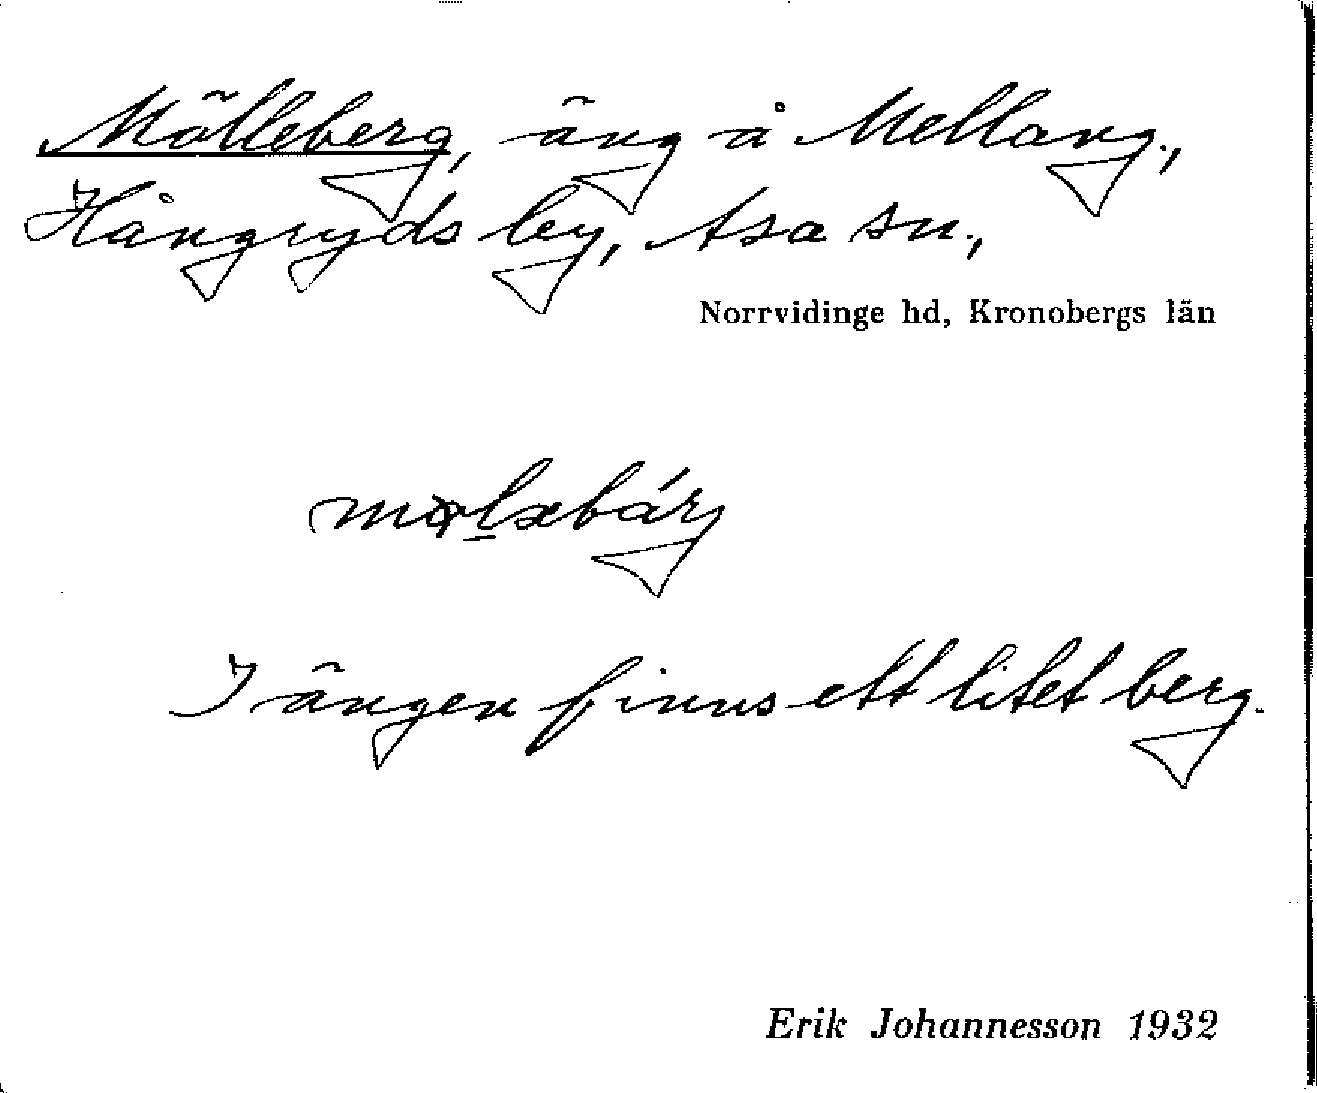 Mölleberg, äng å Mellang.,
Hångryds by, Asa sn.,
Norrvidinge hd, Kronobergs län
I ängen finns ett litet berg.
Erik Johannesson 1932